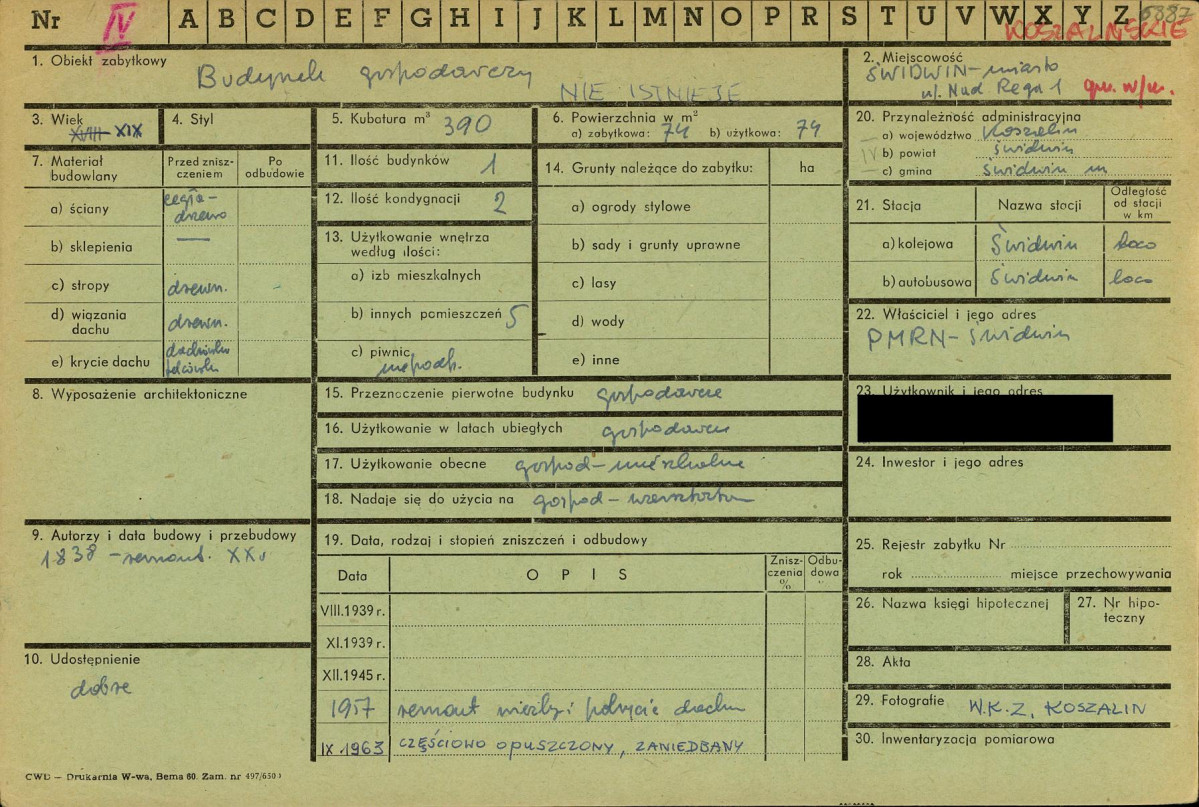 Nr IV A B C D E F G H I J K L M N O P R S T U V W X Y Z 6887
KOSZALIŃSKIE
1. Obiekt zabytkowy
Budynek gospodarczy
NIE ISTNIEJE
2. Miejscowość
ŚWIDWIN - miasto
ul. Nad Regą 1
3. Wiek
XVIII XIX
4. Styl
5. Kubatura m³ 390
6. Powierzchnia w m²
a) zabytkowa: 74 b) użytkowa: 74
20. Przynależność administracyjna
a) województwo Koszalin
IV b) powiat Świdwin
c) gmina Świdwin m
7. Materiał budowlany
Przed zniszczeniem
Po odbudowie
a) ściany cegła - drzewo
b) sklepienia —
c) stropy drzewn.
d) wiązania dachu drzewn.
e) krycie dachu dachówka
11. Ilość budynków 1
12. Ilość kondygnacji 2
13. Użytkowanie wnętrza
według ilości:
a) izb mieszkalnych
b) innych pomieszczeń 5
c) piwnic niepodp.
14. Grunty należące do zabytku: ha
a) ogrody stylowe
b) sady i grunty uprawne
c) lasy
d) wody
e) inne
21. Stacja
Nazwa stacji
Odległość
od stacji
w km
a) kolejowa Świdwin loco
b) autobusowa Świdwin loco
22. Właściciel i jego adres
PMRN - Świdwin
8. Wyposażenie architektoniczne
15. Przeznaczenie pierwotne budynku gospodarcze
16. Użytkowanie w latach ubiegłych gospodarcze
17. Użytkowanie obecne gospod - mieszkalne
18. Nadaje się do użycia na gospod -
23. Użytkownik i jego adres
24. Inwestor i jego adres
9. Autorzy i data budowy i przebudowy
1838 - remont. XX w
10. Udostępnienie
dobre
19. Data, rodzaj i stopień zniszczeń i odbudowy
Data
OPIS
Zniszczenia %
Odbudowa
VIII.1939 r.
XI.1939 r.
XII.1945 r.
1957 remont pokrycie dachu
IX 1963 CZĘŚCIOWO OPUSZCZONY, ZANIEDBANY
25. Rejestr zabytku Nr
rok miejsce przechowywania
26. Nazwa księgi hipotecznej
27. Nr hipoteczny
28. Akta
29. Fotografie W.K.Z. KOSZALIN
30. Inwentaryzacja pomiarowa
CWD — Drukarnia W-wa, Bema 60. Zam. nr 497/650